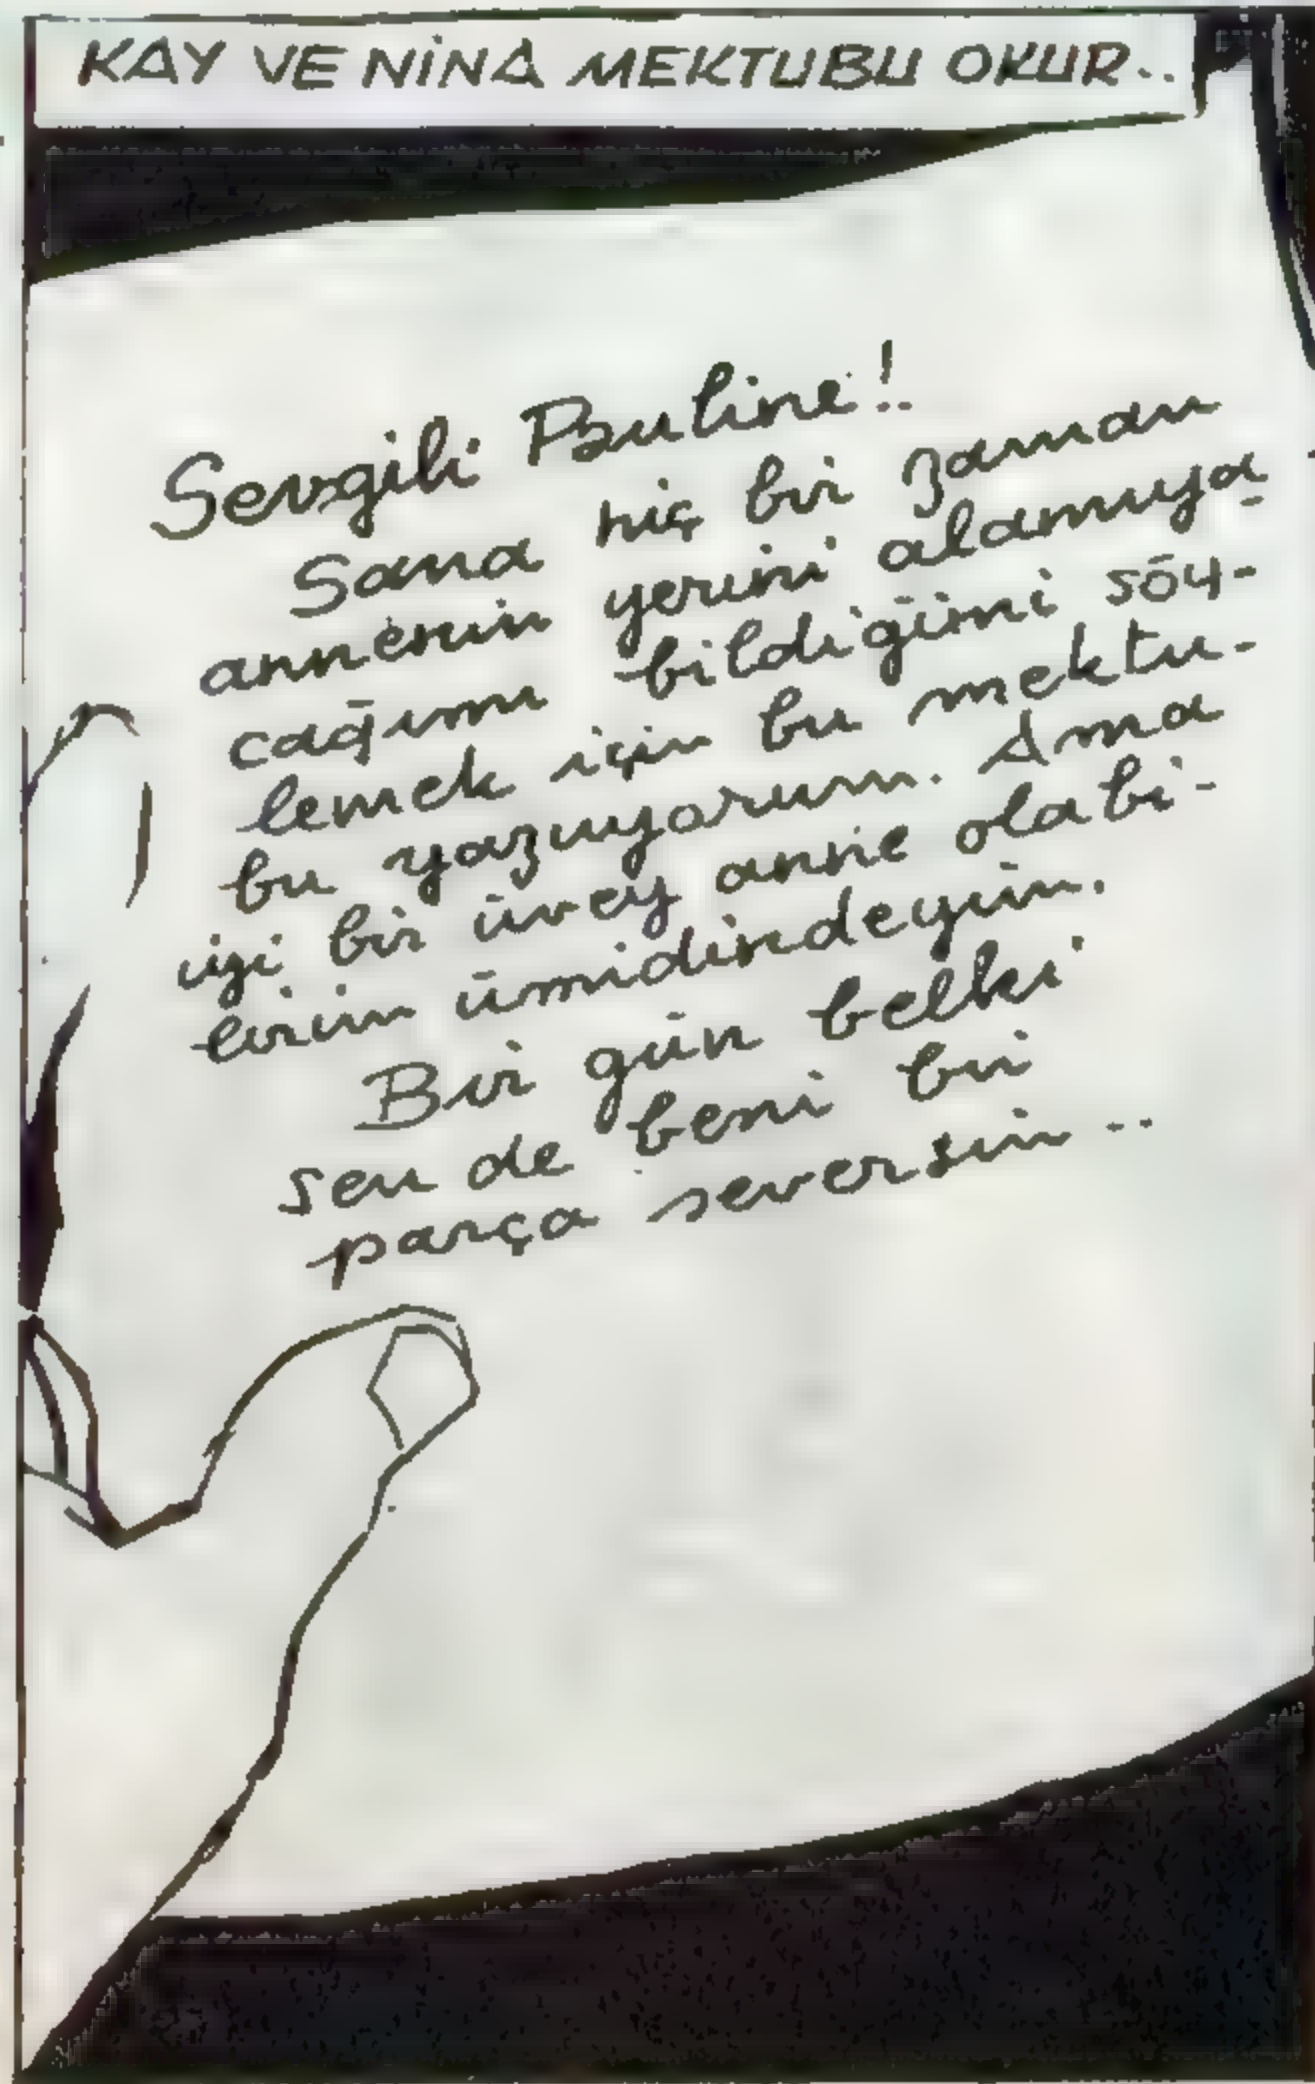 KAY VE NİNA MEKTUBU OKUR..
Sevgili Pauline!
Sana hiç bir zaman
annenin yerini alamıya-
cağımı bildiğimi söy-
lemek için bu mektu-
bu yazıyorum. Ama
iyi bir üvey anne olabi-
lirim ümidindeyim.
Bir gün belki
sen de beni bir
parça seversin..